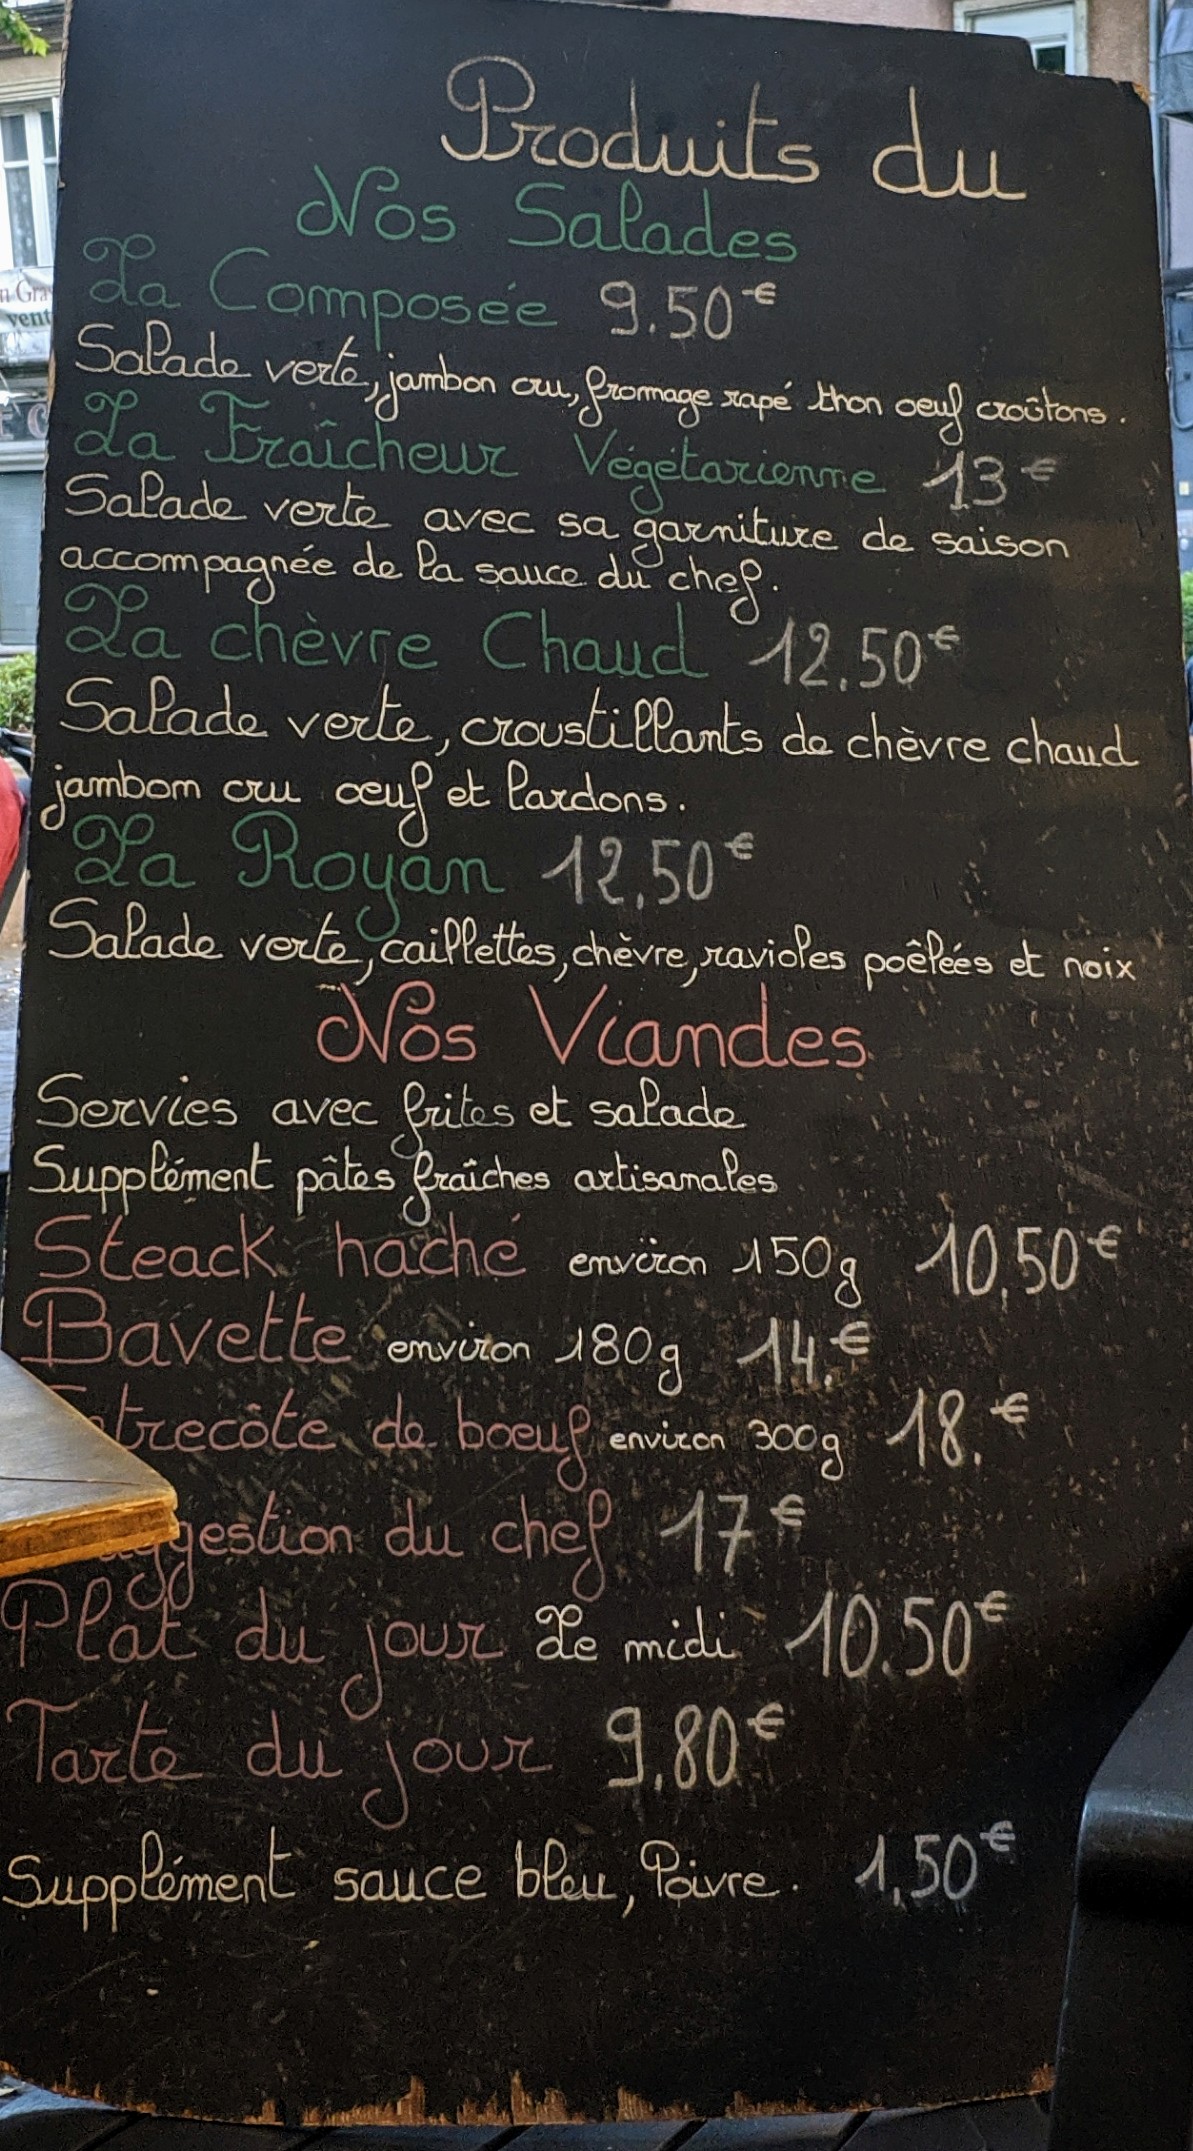 Produits du
Nos Salades
La Composée 9.50€
Salade verte, jambon cru, fromage rapé thon oeuf croûtons.
La Fraîcheur Végétarienne 13€
Salade verte avec sa garniture de saison
accompagnée de la sauce du chef.
La chèvre Chaud 12.50€
Salade verte, croustillants de chèvre chaud
jambom cru oeuf et lardons.
La Royan 12,50€
Salade verte, caillettes, chèvre, ravioles poêlées et noix
Nos Viandes
Servies avec frites et salade
Supplément pâtes fraîches artisanales
Steack haché environ 150g 10,50€
Bavette environ 180g 14.€
trecôte de boeuf environ 300g 18.€
ggestion du chef 17€
Plat du jour Le midi 10.50€
Tarte du jour 9,80€
Supplément sauce bleu, Poivre. 1,50€
n Gra
vent